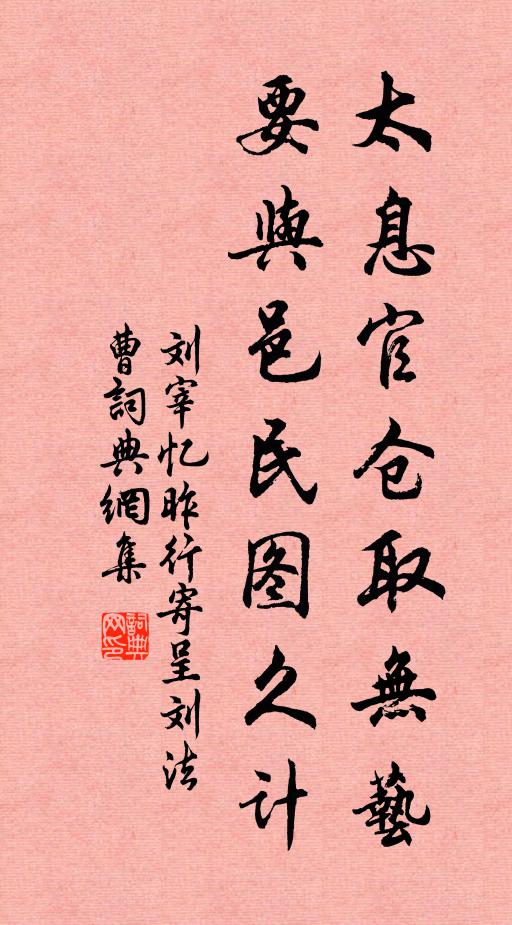 太息官仓取無藝
要與邑民图久计
刘宰忆昨行寄呈刘法
曹詞典網集
詞典網印